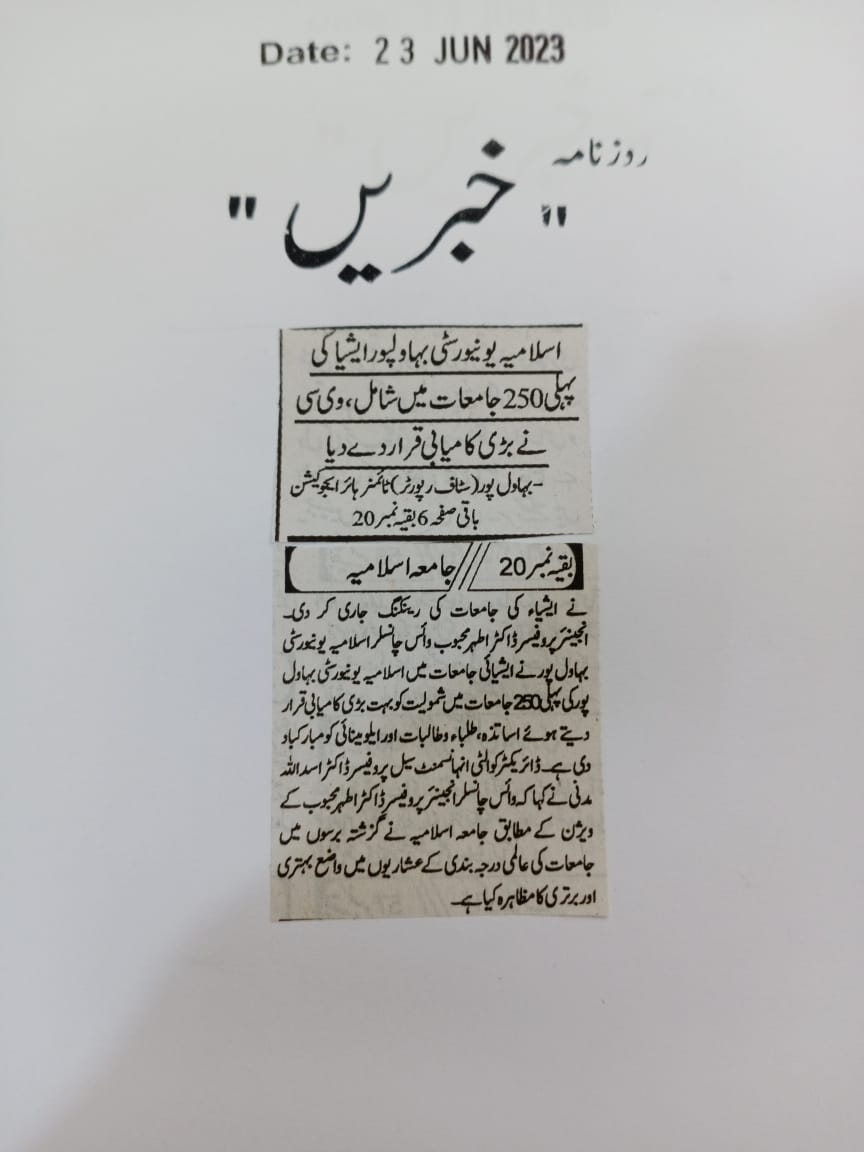 Date: 23 JUN 2023
روزنامہ
"خبریں"
اسلامیہ یونیورسٹی بہاولپور ایشیا کی
پہلی 250 جامعات میں شامل، وی سی
نے بڑی کامیابی قرار دے دیا
-بہاول پور (سٹاف رپورٹر) ٹائمنر ہائر ایجوکیشن
باقی صفحہ 6 بقیہ نمبر 20
بقیہ نمبر 20 /// جامعہ اسلامیہ
نے ایشیاء کی جامعات کی رینکنگ جاری کر دی۔
انجینئر پروفیسر ڈاکٹر اطہر محبوب وائس چانسلر اسلامیہ یونیورسٹی
بہاول پور نے ایشیائی جامعات میں اسلامیہ یونیورسٹی بہاول
پور کی پہلی 250 جامعات میں شمولیت کو بہت بڑی کامیابی قرار
دیتے ہوئے اساتذہ، طلباء و طالبات اور ایلومینائی کو مبارکباد
دی ہے۔ ڈائریکٹر کوالٹی انہانسمنٹ سیل پروفیسر ڈاکٹر اسد اللہ
مدنی نے کہا کہ وائس چانسلر انجینئر پروفیسر ڈاکٹر اطہر محبوب کے
ویژن کے مطابق جامعہ اسلامیہ نے گزشتہ برسوں میں
جامعات کی عالمی درجہ بندی کے عشاریوں میں واضع بہتری
اور برتری کا مظاہرہ کیا ہے۔